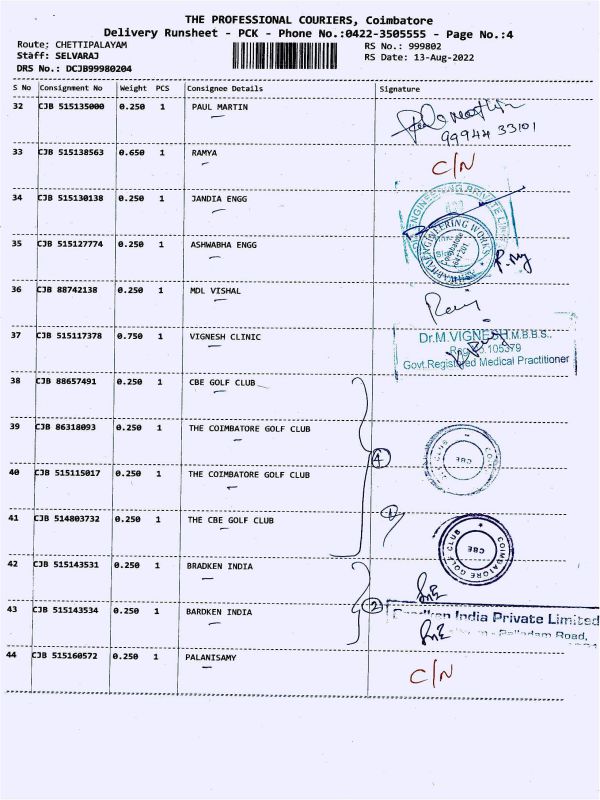 THE PROFESSIONAL COURIERS, Coimbatore
Delivery Runsheet - PCK - Phone No.:0422-3505555 - Page No.:4
Route: CHETTIPALAYAM RS No.: 999802
Staff: SELVARAJ RS Date: 13-Aug-2022
DRS No.: DCJB99980204
S No Consignment No Weight PCS Consignee Details Signature
32 CJB 515135000 0.250 1 PAUL MARTIN
99944 33101
33 CJB 515138563 0.650 1 RAMYA C/N
34 CJB 515130138 0.250 1 JANDIA ENGG
ENGINEERING PRIVATE
35 CJB 515127774 0.250 1 ASHWABHA ENGG
ENGINEERING WORKS
36 CJB 88742138 0.250 1 MDL VISHAL
37 CJB 515117378 0.750 1 VIGNESH CLINIC
Dr.M.VIGNESH,M.B.B.S.,
105379
Govt.Registered Medical Practitioner
38 CJB 88657491 0.250 1 CBE GOLF CLUB
39 CJB 86318093 0.250 1 THE COIMBATORE GOLF CLUB
4
CBE
40 CJB 515115017 0.250 1 THE COIMBATORE GOLF CLUB
41 CJB 514803732 0.250 1 THE CBE GOLF CLUB
COIMBATORE GOLF CLUB
CBE
42 CJB 515143531 0.250 1 BRADKEN INDIA
43 CJB 515143534 0.250 1 BARDKEN INDIA
2
India Private Limited
Palladam Road,
44 CJB 515160572 0.250 1 PALANISAMY C/N